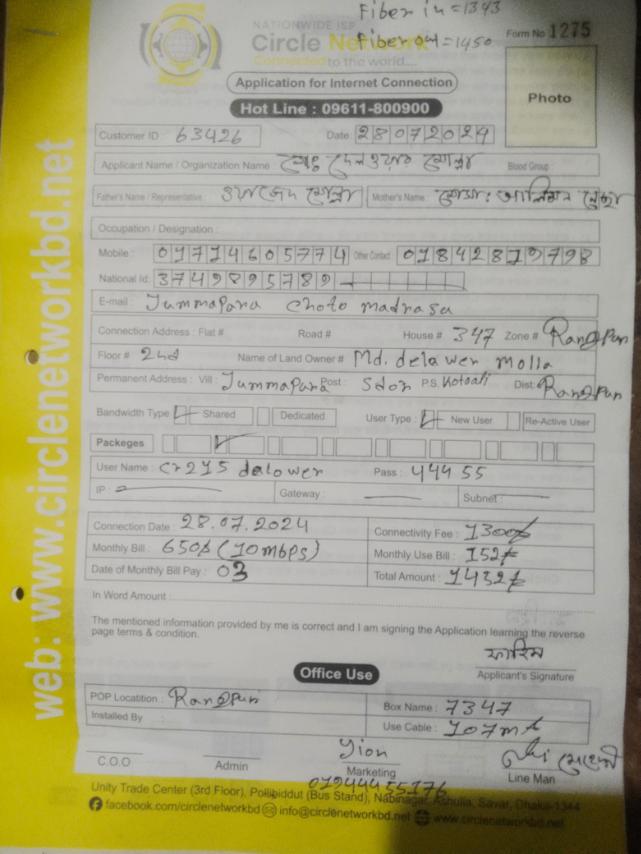 Fiber in = 1343
NATIONWIDE ISP
Fiber out = 1450
Form No 1275
Circle Network
Connected to the world....
Application for Internet Connection
Photo
Hot Line : 09611-800900
Customer ID : 63426 Date 28072024
Applicant Name / Organization Name মোঃ দেলওয়ার মোল্লা Blood Group
Father's Name / Representative : ওয়াজেদ মোল্লা Mother's Name : মোসাঃ
Occupation / Designation :
Mobile : 01714605774 Other Contact
National Id: 3749895789
E-mail : Jummapara Choto madrasa
Connection Address : Flat # Road # House # 347 Zone # Rangpur
Floor # 2nd Name of Land Owner # Md. delawer molla
Permanent Address : Vill : Jummapara Post : Sdor P.S. Kotoali Dist: Rangpur
Bandwidth Type Shared Dedicated User Type : New User Re-Active User
Packeges
User Name : Cr215 dalower Pass : 44455
IP : Gateway : Subnet :
Connection Date : 28.07.2024 Connectivity Fee : 1300/-
Monthly Bill : 650/- (10mbps) Monthly Use Bill : 152/-
Date of Monthly Bill Pay : 03 Total Amount : 1432/-
In Word Amount :
The mentioned information provided by me is correct and I am signing the Application learning the reverse
page terms & condition.
ফাহিম
Applicant's Signature
Office Use
POP Locatition : Rangpur Box Name : 7347
Installed By : Use Cable : 107mt
C.O.O Admin Marketing Line Man
Unity Trade Center (3rd Floor), Pollibiddut (Bus Stand), Nabinagar, Ashulia, Savar, Dhaka-1344
facebook.com/circlenetworkbd info@circlenetworkbd.net www.circlenetworkbd.net
web: www.circlenetworkbd.net